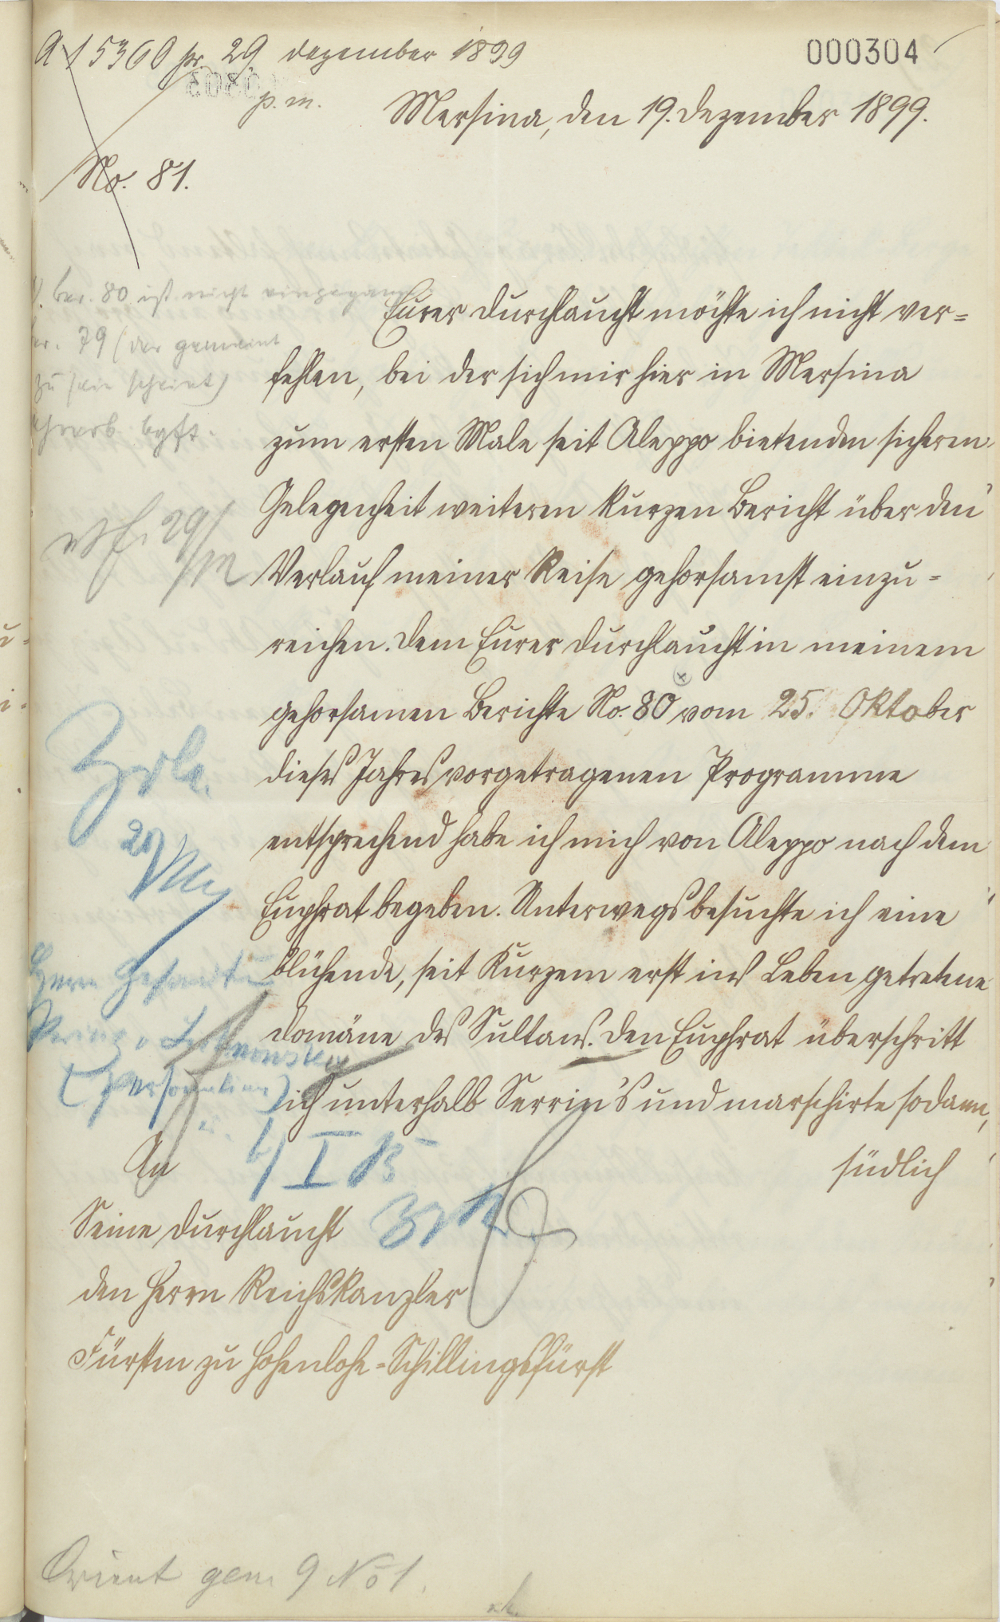 A 15360 pr. 29 Dezember 1899
p. m.
000304
Mersina, den 19. Dezember 1899.
No. 81.
Ber. 80 ist nicht eingegangen
79 (der gemeint
zu sein scheint)
Eurer Durchlaucht möchte ich nicht ver=
fehlen, bei der sich mir hier in Mersina
zum ersten Male seit Aleppo bietenden sicheren
Gelegenheit weiteren kurzen Bericht über den
Verlauf meiner Reise gehorsamst einzu=
reichen. Dem Eurer Durchlaucht in meinem
gehorsamen Berichte No. 80 vom 25. Oktober
dieses Jahres vorgetragenen Programme
entsprechend habe ich mich von Aleppo nach dem
Euphrat begeben. Unterwegs besuchte ich eine
blühende, seit Kurzem erst ins Leben getretene
Domäne des Sultans. Den Euphrat überschritt
ich unterhalb Serrin's und marschirte sodann,
südlich
29/12
Herrn Gesandten
An
Seine Durchlaucht
den Herrn Reichskanzler
Fürsten zu Hohenlohe-Schillingsfürst
Orient gen. 9 No 1.